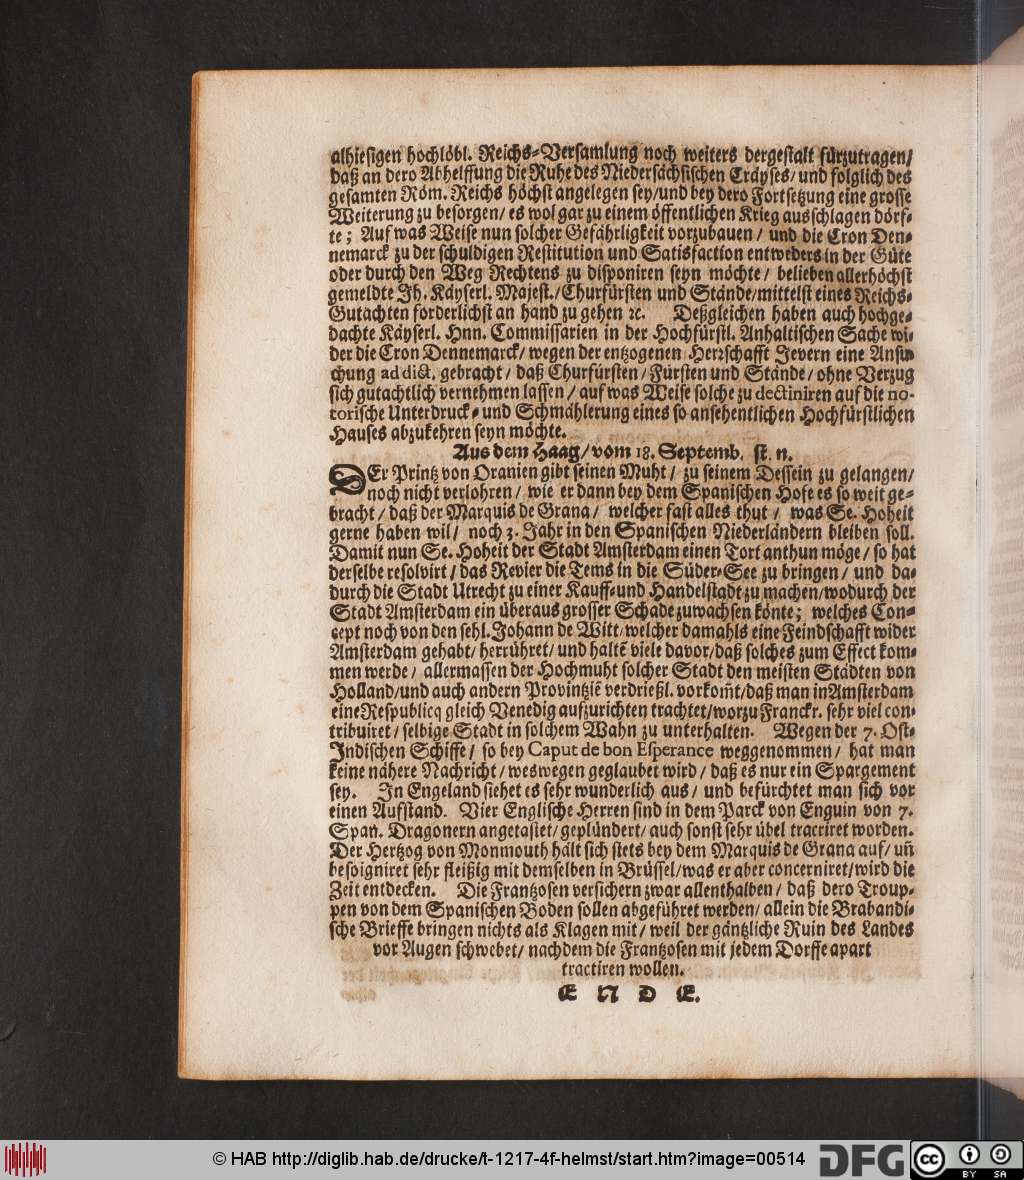 alhiesigen hochlöbl. Reichs-Versamlung noch weiters dergestalt fürzutragen/
daß an dero Abhelffung die Ruhe des Niedersächsischen Cräyses/ und folglich des
gesamten Röm. Reichs höchst angelegen sey/und bey dero Fortsetzung eine grosse
Weiterung zu besorgen/ es wol gar zu einem öffentlichen Krieg ausschlagen dörf-
te; Auf was Weise nun solcher Gefährligkeit vorzubauen/ und die Cron Den-
nemarck zu der schuldigen Restitution und Satisfaction entweders in der Güte
oder durch den Weg Rechtens zu disponiren seyn möchte/ belieben allerhöchst
gemeldte Jh. Käyserl. Majest./Churfürsten und Stände/mittelst eines Reichs-
Gutachten forderlichst an hand zu gehen ꝛc. Deßgleichen haben auch hochge-
dachte Käyserl. Hnn. Commissarien in der Hochfürstl. Anhaltischen Sache wi-
der die Cron Dennemarck/ wegen der entzogenen Herꝛschafft Jevern eine Ansu-
chung ad dict. gebracht/ daß Churfürsten/Fürsten und Stände/ohne Verzug
sich gutachtlich vernehmen lassen/ auf was Weise solche zu dectiniren auf die no-
torische Unterdruck- und Schmählerung eines so ansehentlichen Hochfürstlichen
Hauses abzukehren seyn möchte.
Aus dem Haag/ vom 18. Septemb. st. n.
DEr Printz von Oranien gibt seinen Muht/ zu seinem Dessein zu gelangen/
noch nicht verlohren/ wie er dann bey dem Spanischen Hofe es so weit ge-
bracht/ daß der Marquis de Grana/ welcher fast alles thut/ was Se. Hoheit
gerne haben wil/ noch 3. Jahr in den Spanischen Niederländern bleiben soll.
Damit nun Se. Hoheit der Stadt Amsterdam einen Tort anthun möge/ so hat
derselbe resolvirt/ das Revier die Tems in die Süder-See zu bringen/ und da-
durch die Stadt Utrecht zu einer Kauff- und Handelstadt zu machen/wodurch der
Stadt Amsterdam ein überaus grosser Schade zuwachsen könte; welches Con-
cept noch von den sehl. Johann de Witt/welcher damahls eine Feindschafft wider
Amsterdam gehabt/ herrühret/ und haltē viele davor/daß solches zum Effect kom-
men werde/ allermassen der Hochmuht solcher Stadt den meisten Städten von
Holland/und auch andern Provintziē verdrießl. vorkom̃t/daß man in Amsterdam
eine Respublicq gleich Venedig aufzurichten trachtet/worzu Franckr. sehr viel con-
tribuiret/ selbige Stadt in solchem Wahn zu unterhalten. Wegen der 7. Ost-
Indischen Schiffe/ so bey Caput de bon Esperance weggenommen/ hat man
keine nähere Nachricht/ weswegen geglaubet wird/ daß es nur ein Spargement
sey. In Engeland siehet es sehr wunderlich aus/ und befürchtet man sich vor
einen Aufstand. Vier Englische Herren sind in dem Parck von Enguin von 7.
Span. Dragonern angetastet/ geplündert/ auch sonst sehr übel tractiret worden.
Der Hertzog von Monmouth hält sich stets bey dem Marquis de Grana auf/ uñ
besoigniret sehr fleißig mit demselben in Brüssel/was er aber concerniret/wird die
Zeit entdecken. Die Frantzosen versichern zwar allenthalben/ daß dero Troup-
pen von dem Spanischen Boden sollen abgeführet werden/ allein die Brabandi-
sche Brieffe bringen nichts als Klagen mit/ weil der gäntzliche Ruin des Landes
vor Augen schwebet/ nachdem die Frantzosen mit jedem Dorffe apart
tractiren wollen.
E N D E.
© HAB http://diglib.hab.de/drucke/t-1217-4f-helmst/start.htm?image=00514
DFG
cc BY SA